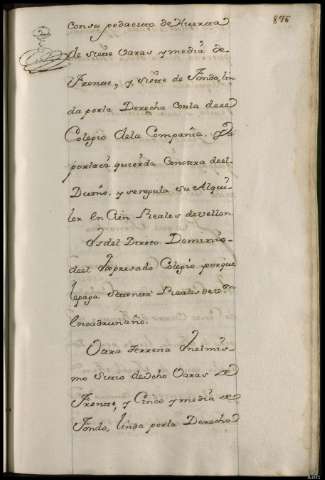 876
Con su pedacito de Huerta
de siete Varas y media de
Frente, y Siete de Fondo, lin
da por la Derecha con la de ese
Colegio de la Compañia, Y
por la ezquierda con otra del
Dueño, y se regula su Alqui
ler En Cien Reales de vellon
Es del Directo Dominio
del Expresado Colegio, porque
le paga Reales de v.n
En cada un año.
Otra Terrena En el mis
mo Sitio de ocho Varas de
Frente, y Cinco y media de
Fondo, linda por la Derecha